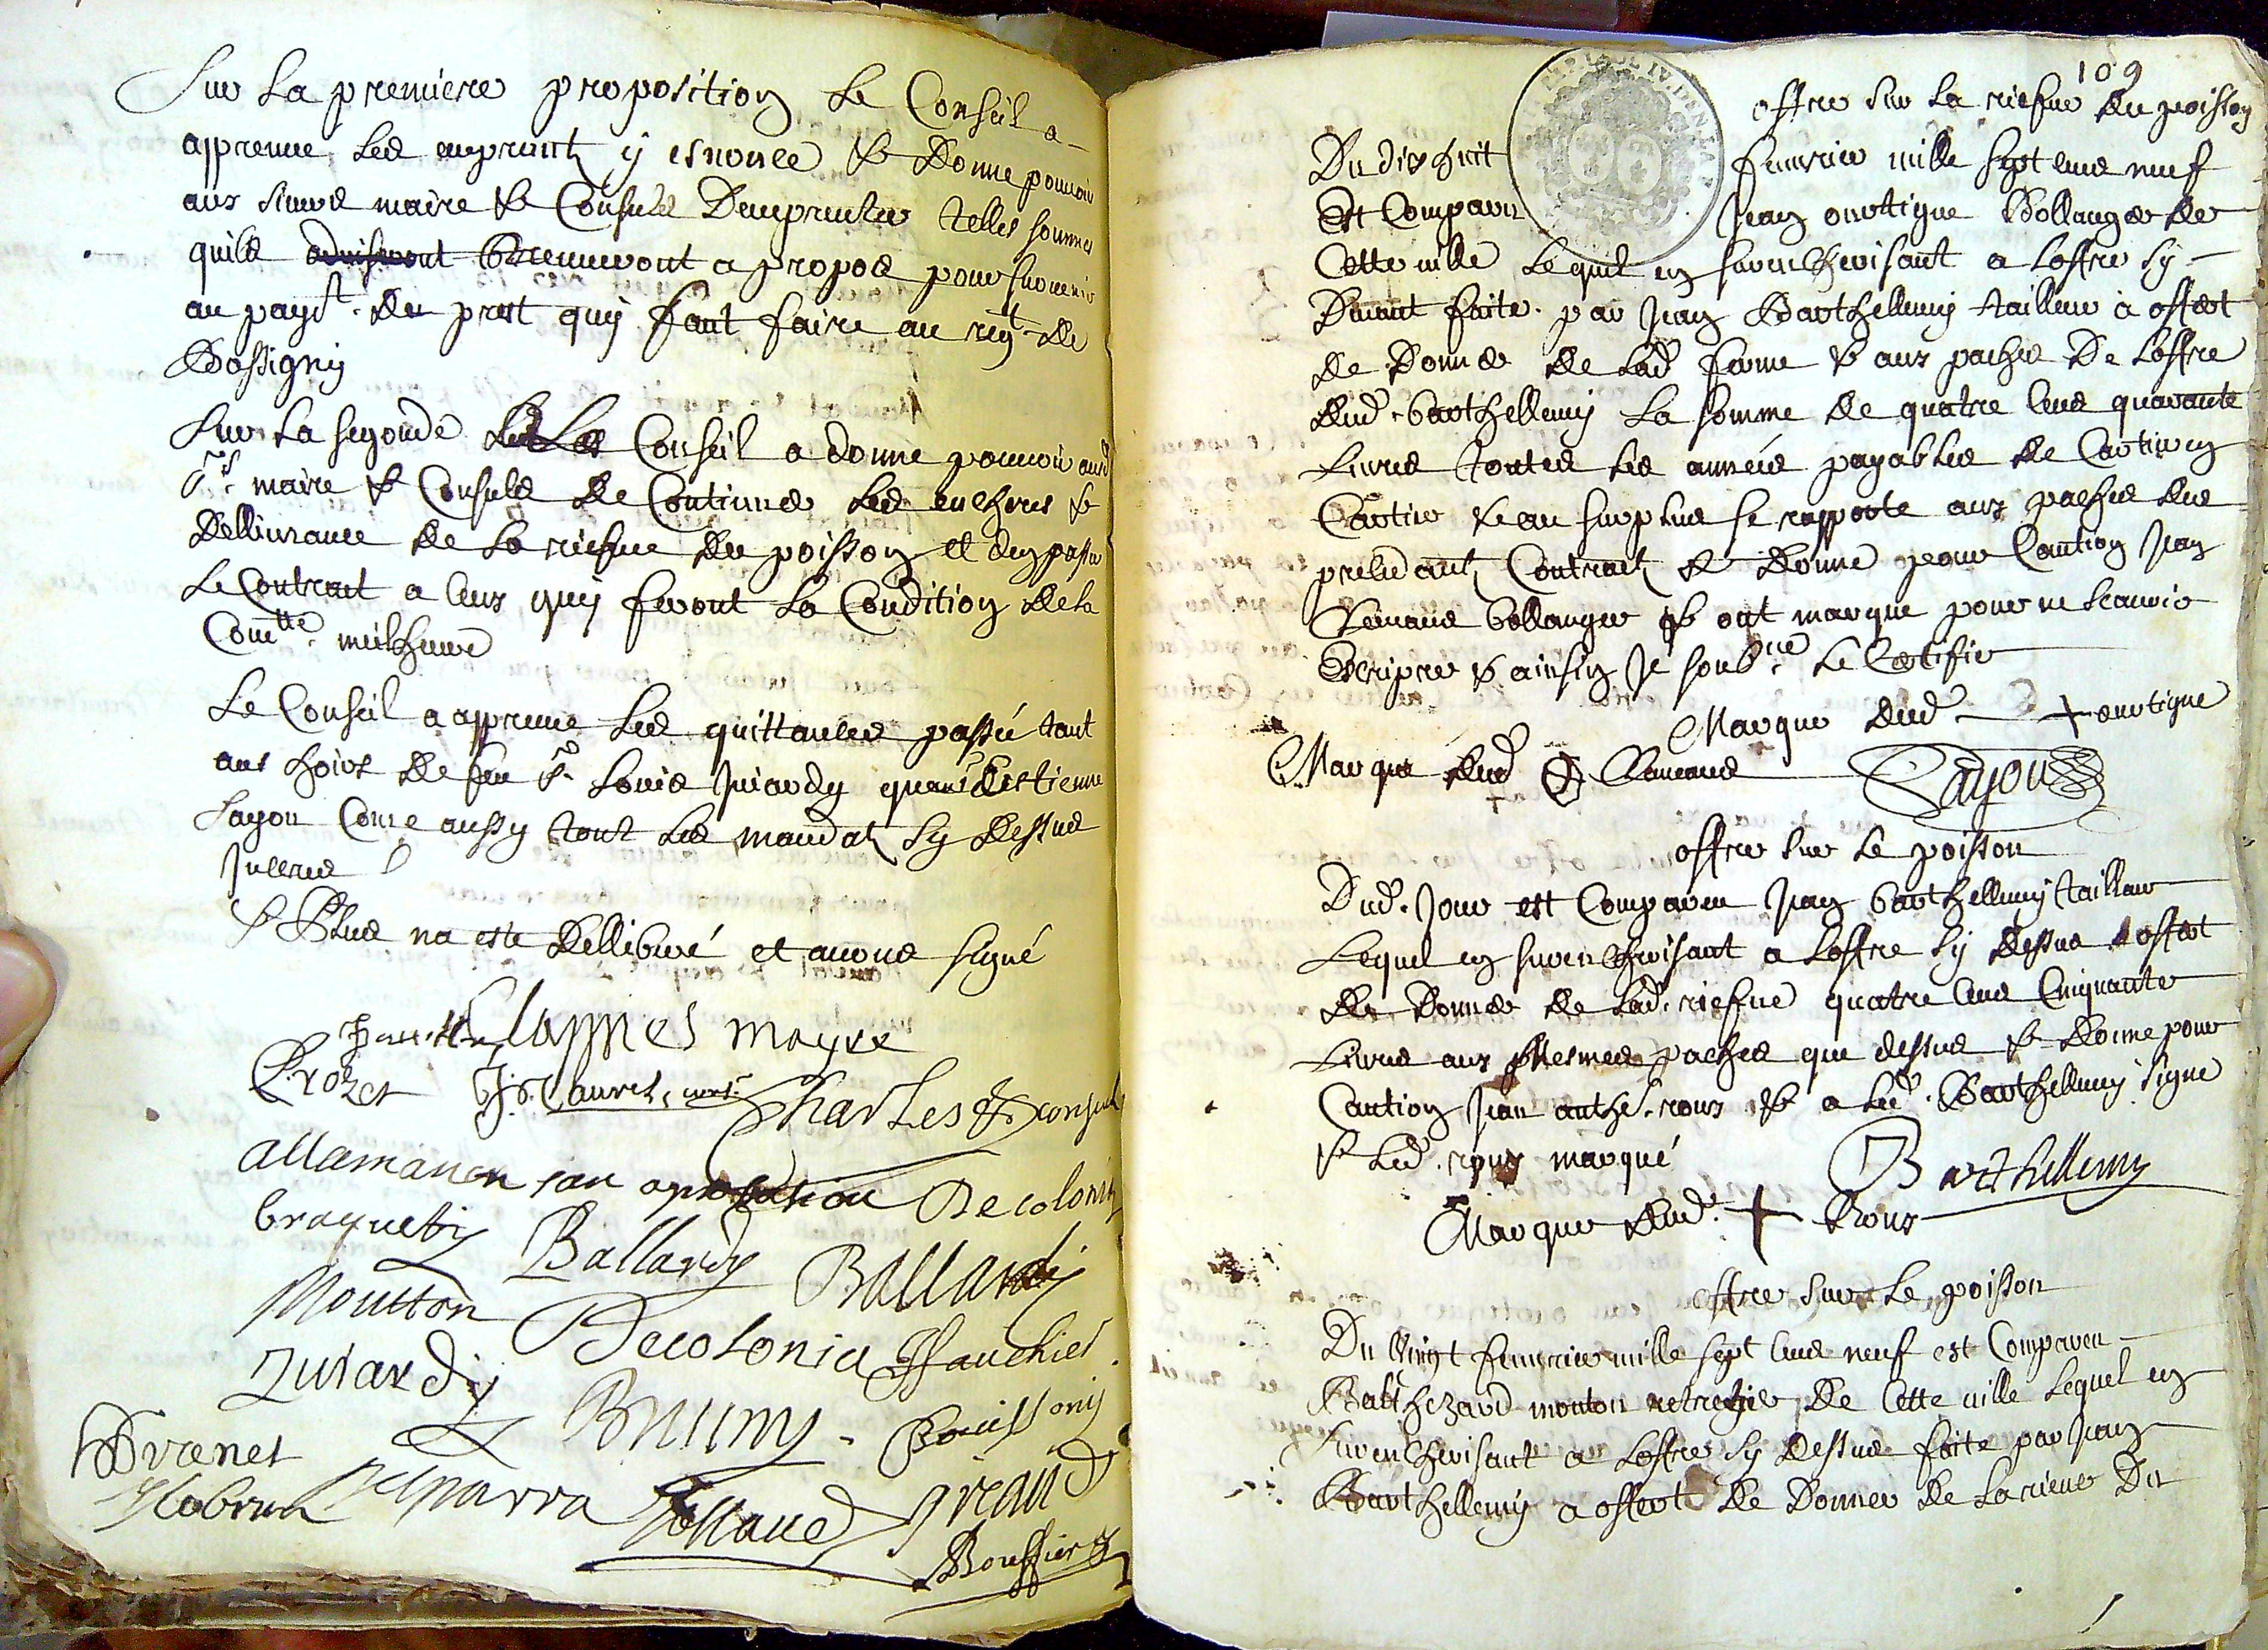 Sur la premiere proposition le Conseil a
appreuué les emprunts y esnoncé & donne pouuoir
aux sieurs maire & Consuls demprunter telles sommes
quils adviseront treuueront a propos pour suruenir
au payt. du prest quy faut faire au regt. de
Bassigny
Sur la segonde le Conseil a donné pouuoir ausd
srs. maire & Consuls de Continuer les encheres &
dellivrance de la riesve du poisson et den passer
le Contract a ceux quy feront la Condition de la
Comtte. meilheure
Le Conseil a appreuué les quittances passé tant
aux hoirs de feu sr. Louis Juiardy quau sr Estienne
Layon Come aussy tous les mandats sy dessus
Inceres
& Plus na esté delliberé et auons signé
Clappiés mayre
Crozet J. Lauret, cons. Charles consul
allamanon san aprobation Decolonia
braquety Ballardy Ballardy
Moutton Decolonia Fauchier
Juiardy Brunny Bouissony
Brenet
Sparra Tollaue greaud
Bouffier
109
offre sur la riesve du poisson
Du dix huit feuurier mille sept cens neuf
Est Comparu Jean ourtigue Bollanger de
Cette uille lequel en surencherisant a loffre sy
deuant faite par Jean Barthellemy tailleur à offert
de donner de lad ferme & aux paches de loffre
dud. barthellemy la somme de quatre cens quarante
Liures toutes les années payables de Cartier en
Cartier & au surplus se rapporte aux paches des
precedants Contracts & donne pour Caution Jean
Renaud bollanger & ont marque pour ne scauoir
Escripre & ainsin je soubne. le Certifie
Marque dud + ourtigue
Marque dud Renaud Layon
offre sur le poisson
Dud. Jour est Comparu Jean barthellemy tailleur
Lequel en surencherisant a loffre sy dessus a offert
de donner de lad. riesve quatre cens Cinquante
Liures aux mesmes paches que dessus & donne pour
Caution Jean anthe. roux & a led. Barthellemy signé
& led. roux marqué Barthellemy
Marque dud. + Roux
offre sur le poisson
Du vingt feuurier mille sept cens neuf est Comparu
Balthezard mouton de Cette uille lequel en
surencherisant a loffre sy dessus faite par Jean
Barthellemy a offert de donner de la rieue du